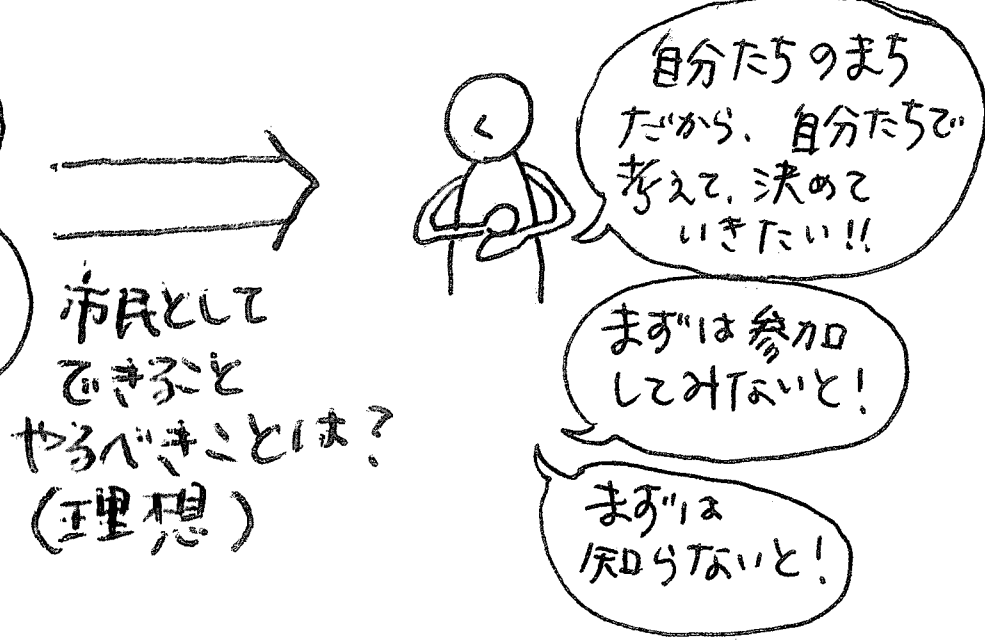 市民として
できること
やるべきことは？
（理想）
自分たちのまち
だから、自分たちで
考えて、決めて
いきたい!!
まずは参加
してみないと！
まずは
知らないと！